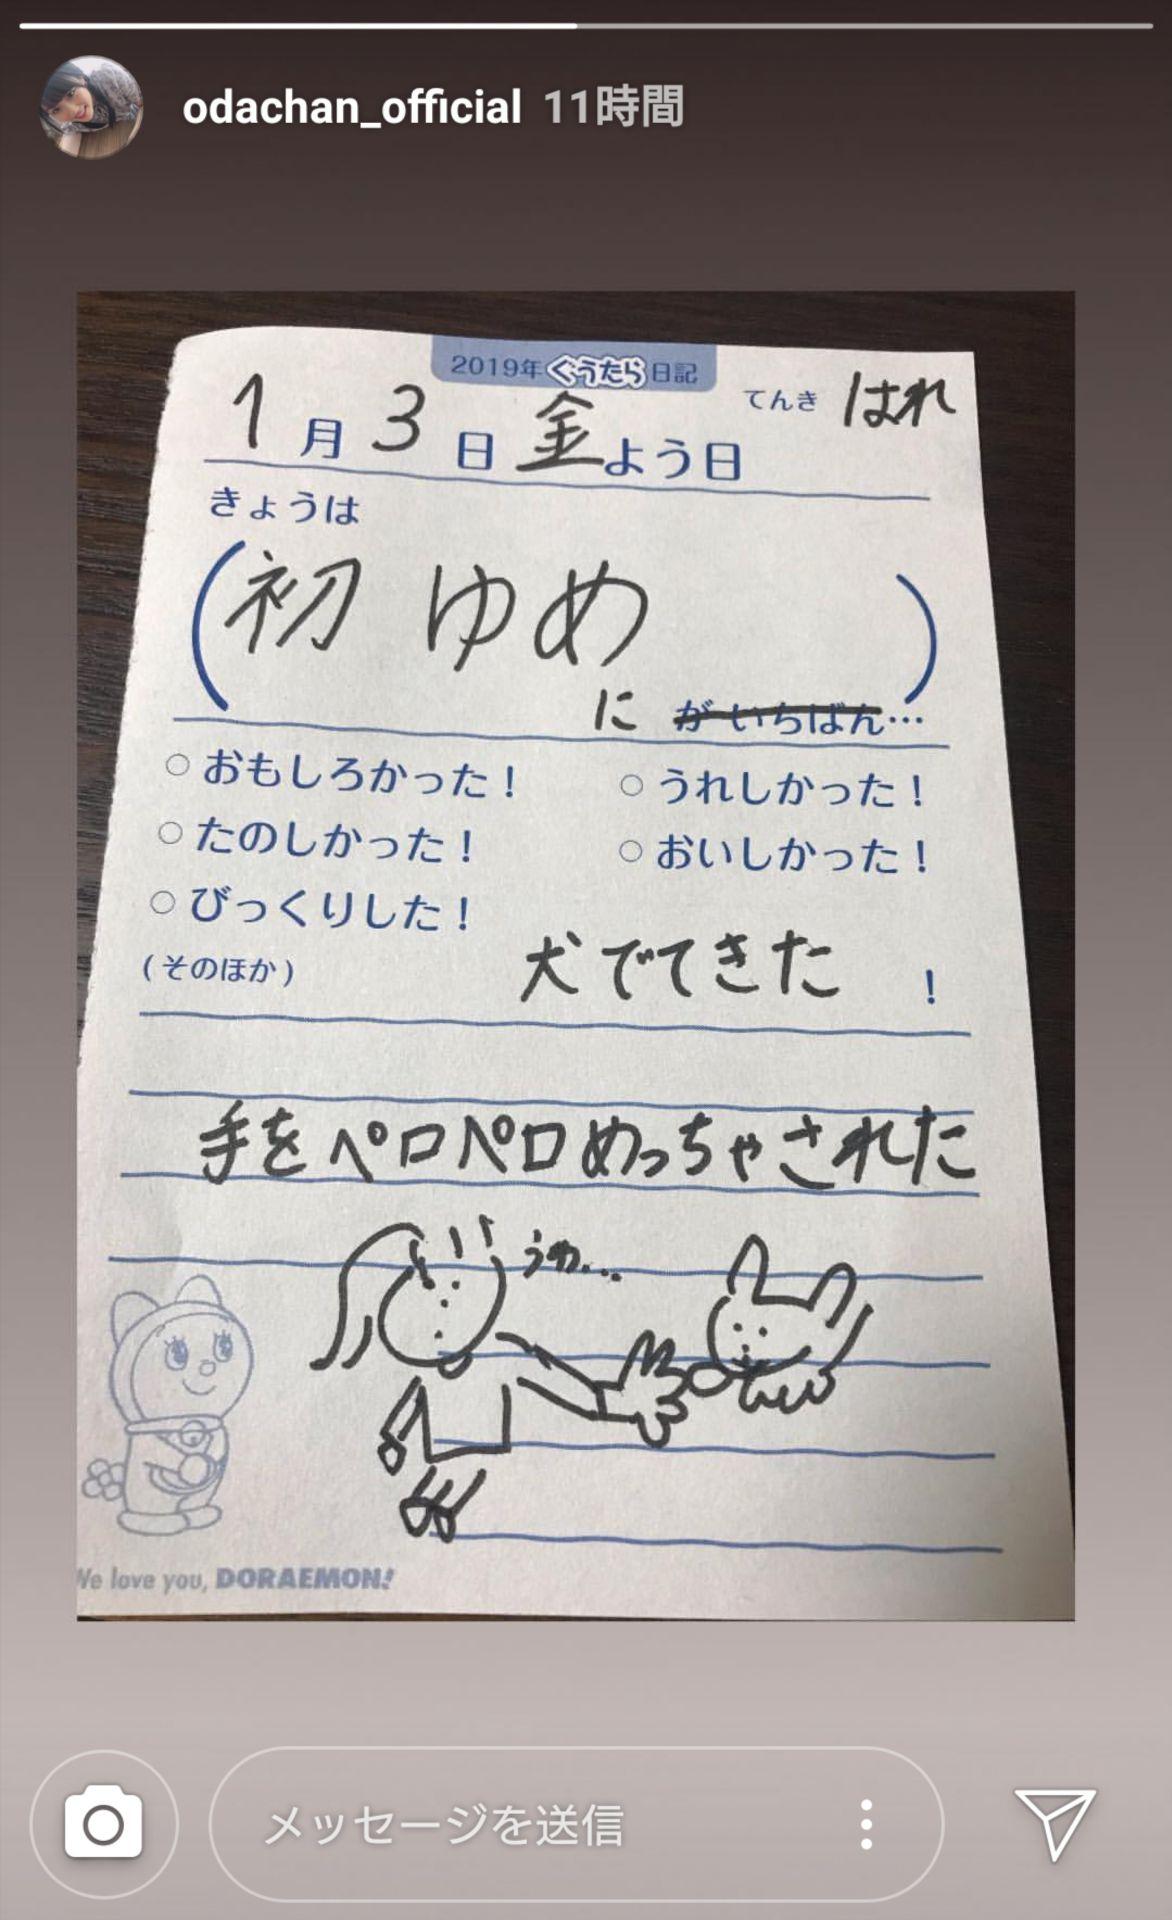 odachan_official 11時間
2019年ぐうたら日記
1月3日金よう日 てんき はれ
きょうは
(初ゆめ)
に がいちばん…
○おもしろかった! ○うれしかった!
○たのしかった! ○おいしかった!
○びっくりした!
(そのほか) 犬でてきた!
手をペロペロめっちゃされた
うわ...
We love you, DORAEMON!
メッセージを送信